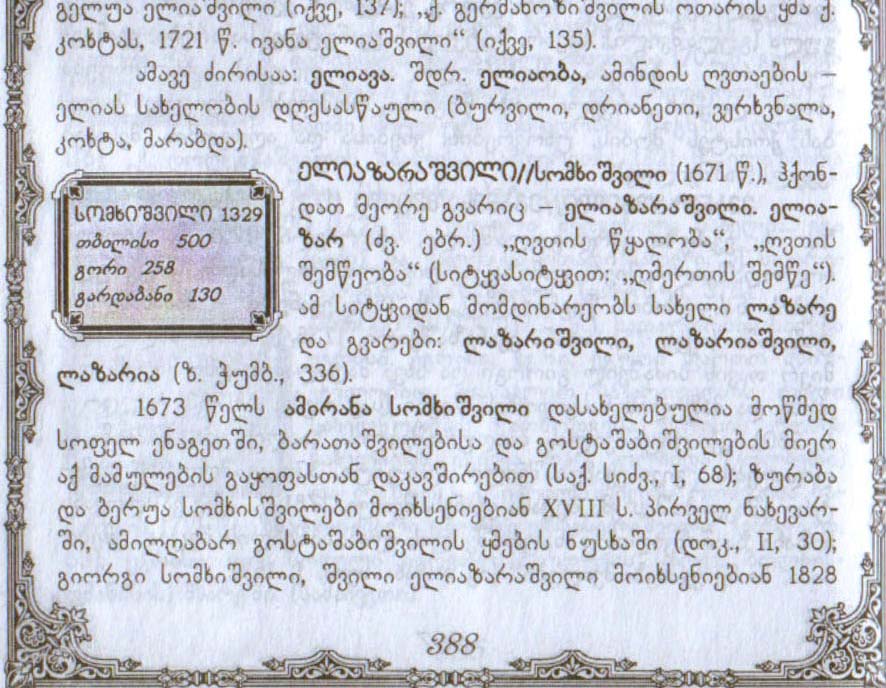 გელუა ელიაშვილი (იქვე, 137); „ქ. გერმანოზიშვილის ოთარის ყმა ქ.
კოხტას, 1721 წ. ივანა ელიაშვილი“ (იქვე, 135).
ამავე ძირისაა: ელიავა. შდრ. ელიაობა, ამინდის ღვთაების –
ელიას სახელობის დღესასწაული (ბურვილი, დრიანეთი, ვერხვნალა,
კოხტა, მარაბდა).
ელიაზარაშვილი//სომხიშვილი (1671 წ.), ჰქონ-
დათ მეორე გვარიც – ელიაზარაშვილი. ელია-
ზარ (ძვ. ებრ.) „ღვთის წყალობა“, „ღვთის
შემწეობა“ (სიტყვასიტყვით: „ღმერთის შემწე“).
ამ სიტყვიდან მომდინარეობს სახელი ლაზარე
და გვარები: ლაზარიშვილი, ლაზარიაშვილი,
ლაზარია (ზ. ჭუმბ., 336).
სომხიშვილი 1329
თბილისი 500
გორი 258
გარდაბანი 130
1673 წელს ამირანა სომხიშვილი დასახელებულია მოწმედ
სოფელ ენაგეთში, ბარათაშვილებისა და გოსტაშაბიშვილების მიერ
აქ მამულების გაყოფასთან დაკავშირებით (საქ. სიძვ., I, 68); ზურაბა
და ბერუა სომხისშვილები მოიხსენიებიან XVIII ს. პირველ ნახევარ-
ში, ამილღაბარ გოსტაშაბიშვილის ყმების ნუსხაში (დოკ., II, 30);
გიორგი სომხიშვილი, შვილი ელიაზარაშვილი მოიხსენიებიან 1828
388